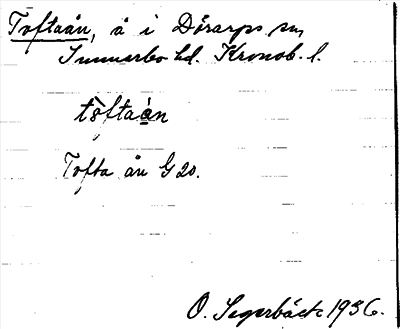 Toftaån, å i Dörarps sn,
Sunnerbo hd. Kronob. l.
tòftaán
Tofta ån G 20.
O. Segerbäck 1936.